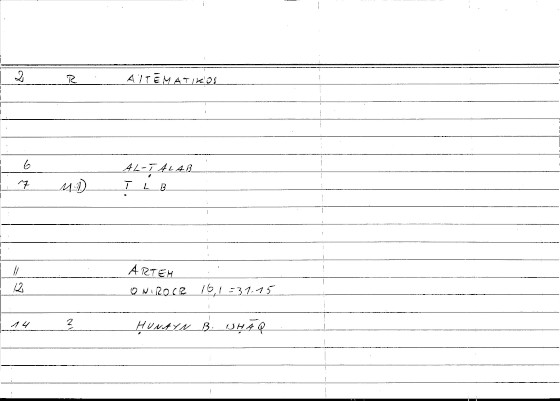 2 R AITĒMATIKOS
6 AL-ṬALAB
7 ṬLB
11 ARTEM
12 ONIROCR 16,1 = 31.15
14 3 ḤUNAYN B. ISḤĀQ